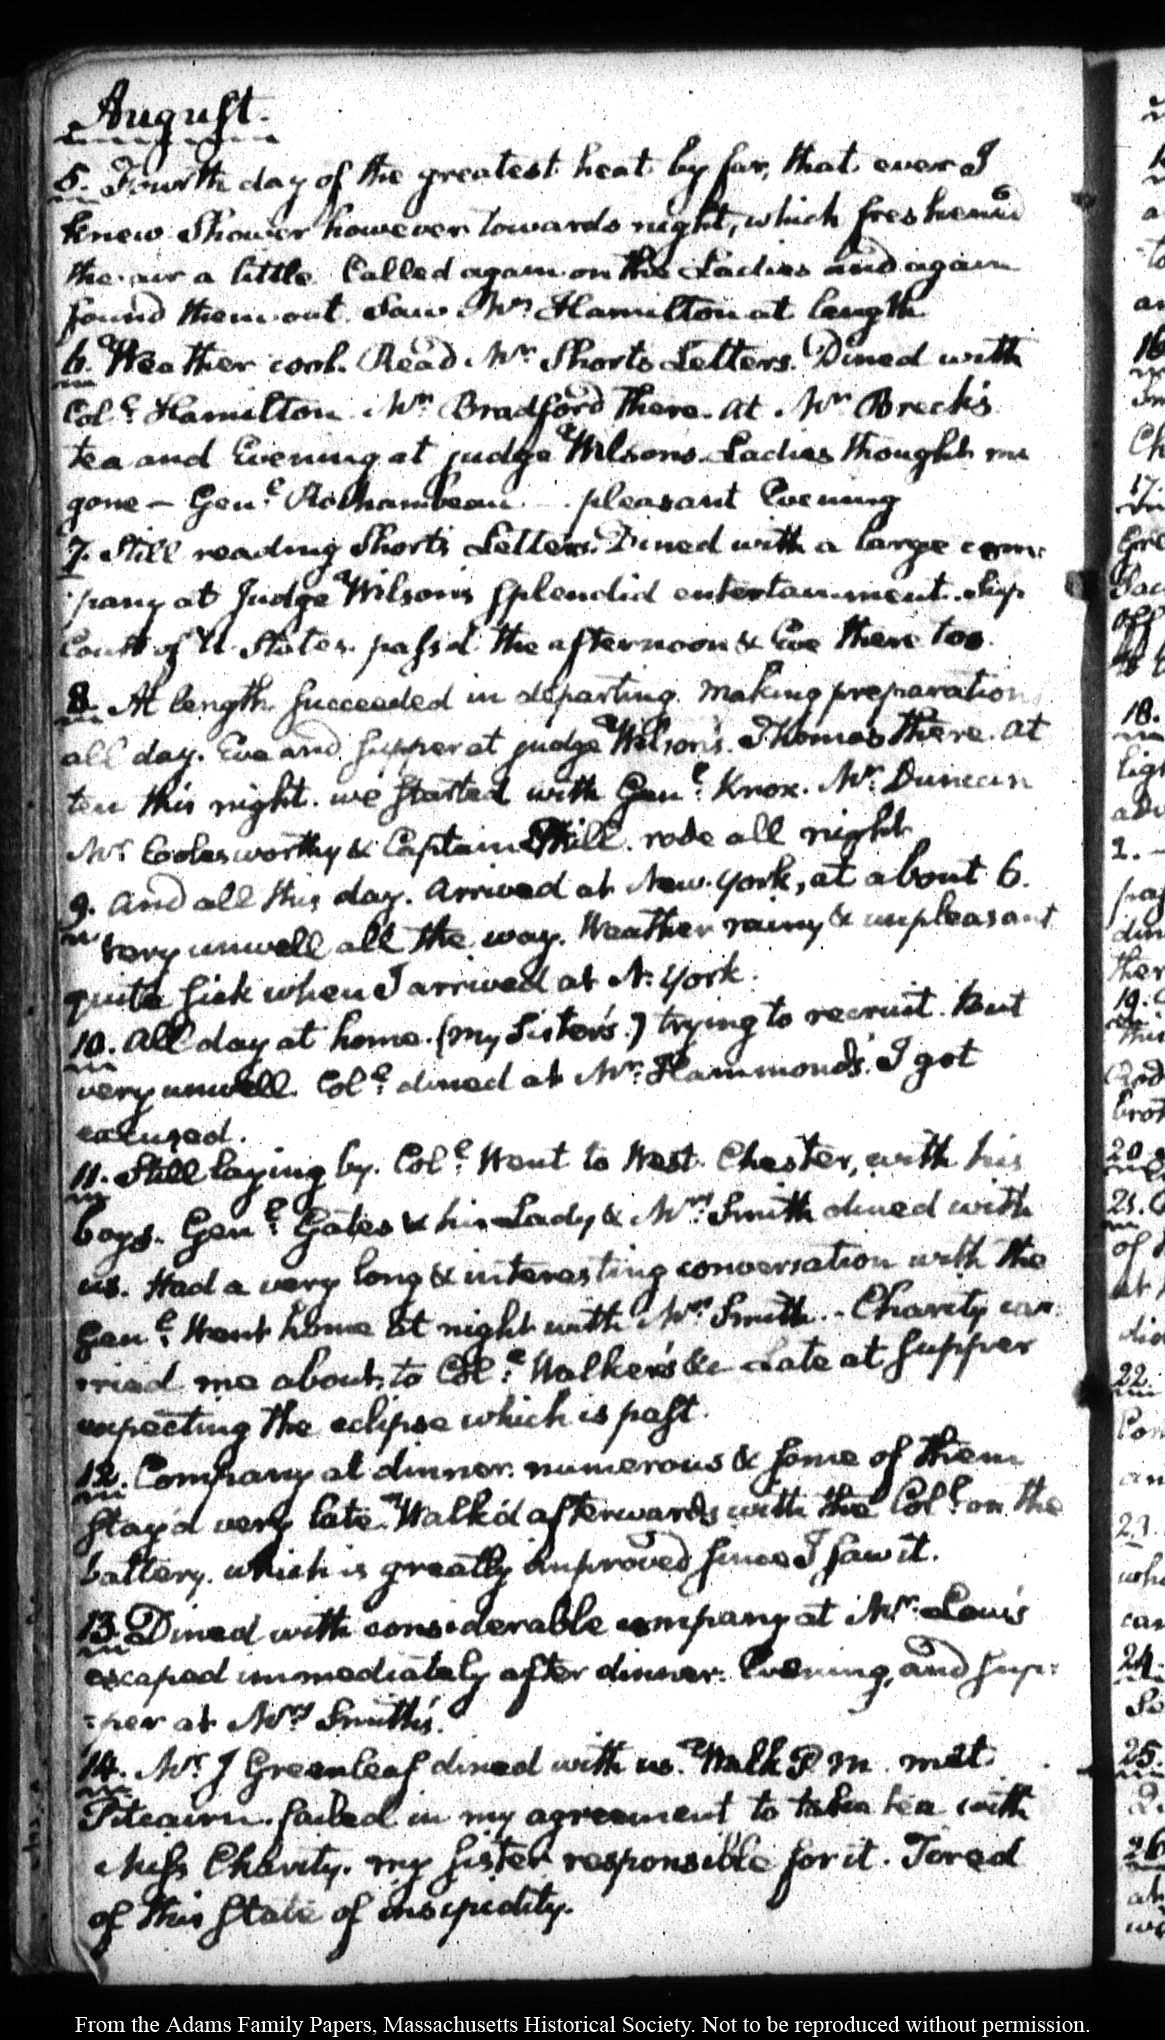 August.
5. Fourth day of the greatest heat by far, that ever I
knew Shower however towards night, which freshen'd
the air a little. Called again on the Ladies and again
found them out. Saw Mr. Hamilton at length
6. Weather cool. Read Mr. Shorts Letters. Dined with
Coll: Hamilton. Mr. Bradford there. At Mr. Breck's
tea and Evening at judge Wilsons. Ladies thought me
gone — Genl: Rochambeau — pleasant Evening
7. Still reading Short's Letters. Dined with a large com-
pany at Judge Wilson's splendid entertainment. Sup.
Court of U. States. pass'd the afternoon & Eve there too.
8. At length succeeded in departing. Making preparation
all day. Eve and supper at judge Wilson's. Thomas there. At
ten this night. we started with Genl: Knox. Mr. Duncan
Mr. Coolesworthy & Captain Mill. rode all night
9. And all this day. Arrived at New-York, at about 6.
very unwell all the way. Weather rainy & unpleasant
quite sick when I arrived at N. York.
10. All day at home. (my Sister's.) trying to recruit. But
very unwell. Coll: dined at Mr. Hammond's. I got
excused.
11. Still laying by. Coll: Went to West Chester, with his
boys. Genl: Gates & his Lady & Mrs. Smith dined with
us. Had a very long & interesting conversation with the
Genl: Went home at night with Mrs. Smith. - Charity car-
ried me about, to Coll: Walker's &c Late at supper
expecting the eclipse which is past.
12. Company at dinner. numerous & some of them
stay'd very late. Walk'd afterwards with the Coll: on the
battery. which is greatly improved since I saw it.
13. Dined with considerable company at Mr. Low's
escaped immediately after dinner. Evening, and sup-
-per at Mrs. Smith's.
14. Mr. J Greenleaf dined with us. Walk P. M. met
Pitcairn. failed in my agreement to take tea with
Miss Charity. my Sister responsible for it. Tored
of this State of insipidity.
From the Adams Family Papers, Massachusetts Historical Society. Not to be reproduced without permission.